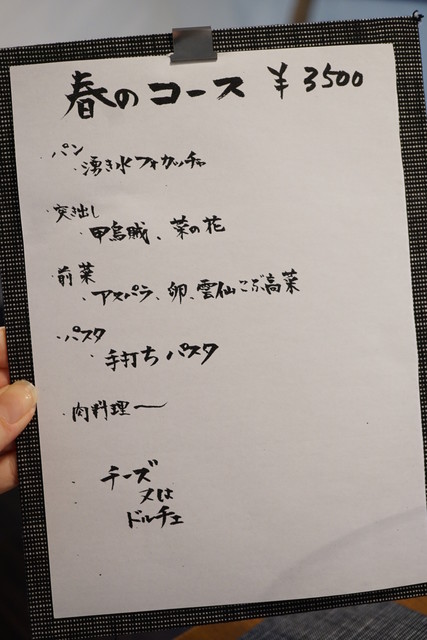 春のコース ¥3500
・パン
・湧き水フォカッチャ
突き出し
・甲烏賊、菜の花
・前菜
・アスパラ、卵、雲仙こぶ高菜
・パスタ
・手打ちパスタ
・肉料理〜
チーズ
又は
ドルチェ